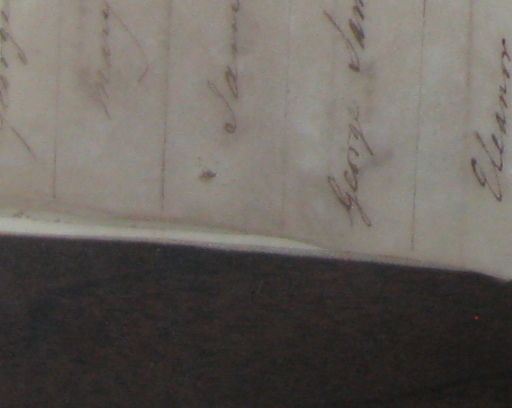 George
Mary
Sam
George Sam
Eleanor